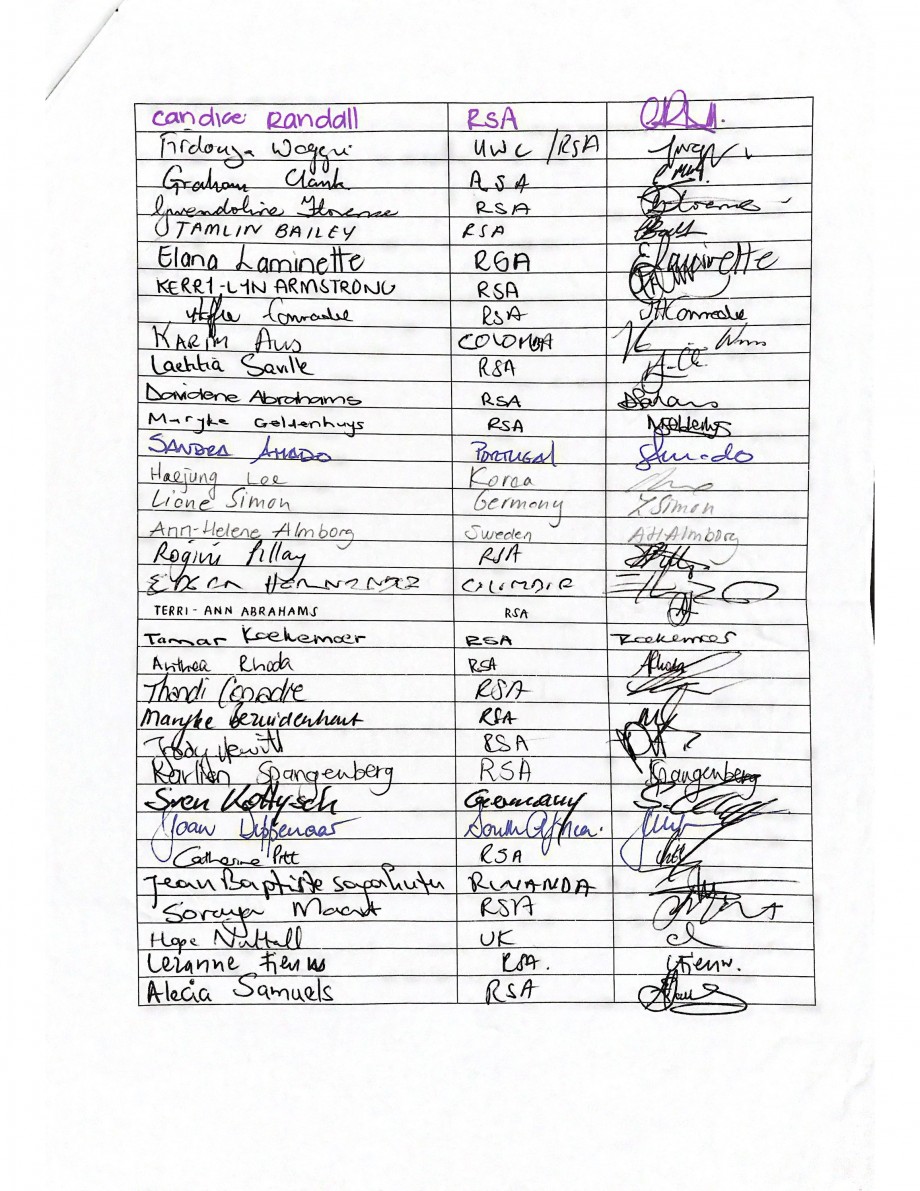 Candice Randall RSA
Waggie UWC /RSA
Graham Clark RSA
Gwendoline Florence RSA
TAMLIN BAILEY RSA
Elana Laminette RSA Elaminette
KERRI-LYN ARMSTRONG RSA
Conradie RSA Conradie
KARIM RSA
Laetitia Saville RSA
Davidene Abrahams RSA
Maryke Geldenhuys RSA
SANDRA AMADO PORTUGAL
Haejung Lee Korea
Lione Simon Germany LSimon
Ann-Helene Almborg Sweden AHAlmborg
Rogini Pillay RSA
TERRI-ANN ABRAHAMS RSA
Tanmar Koekemoer RSA Koekemoer
Anthea Rhoda RSA
Thandi Conradie RSA
Maryke Bezuidenhout RSA
RSA
Karlien Spangenberg RSA Spangenberg
Sven Germany
Joan Dippenaar South Africa.
Catherine Pitt RSA
Jean Baptiste Sagahutu RWANDA
Soraya Maart RSA
Hope Nuttall UK
Lezanne RSA.
Alecia Samuels RSA